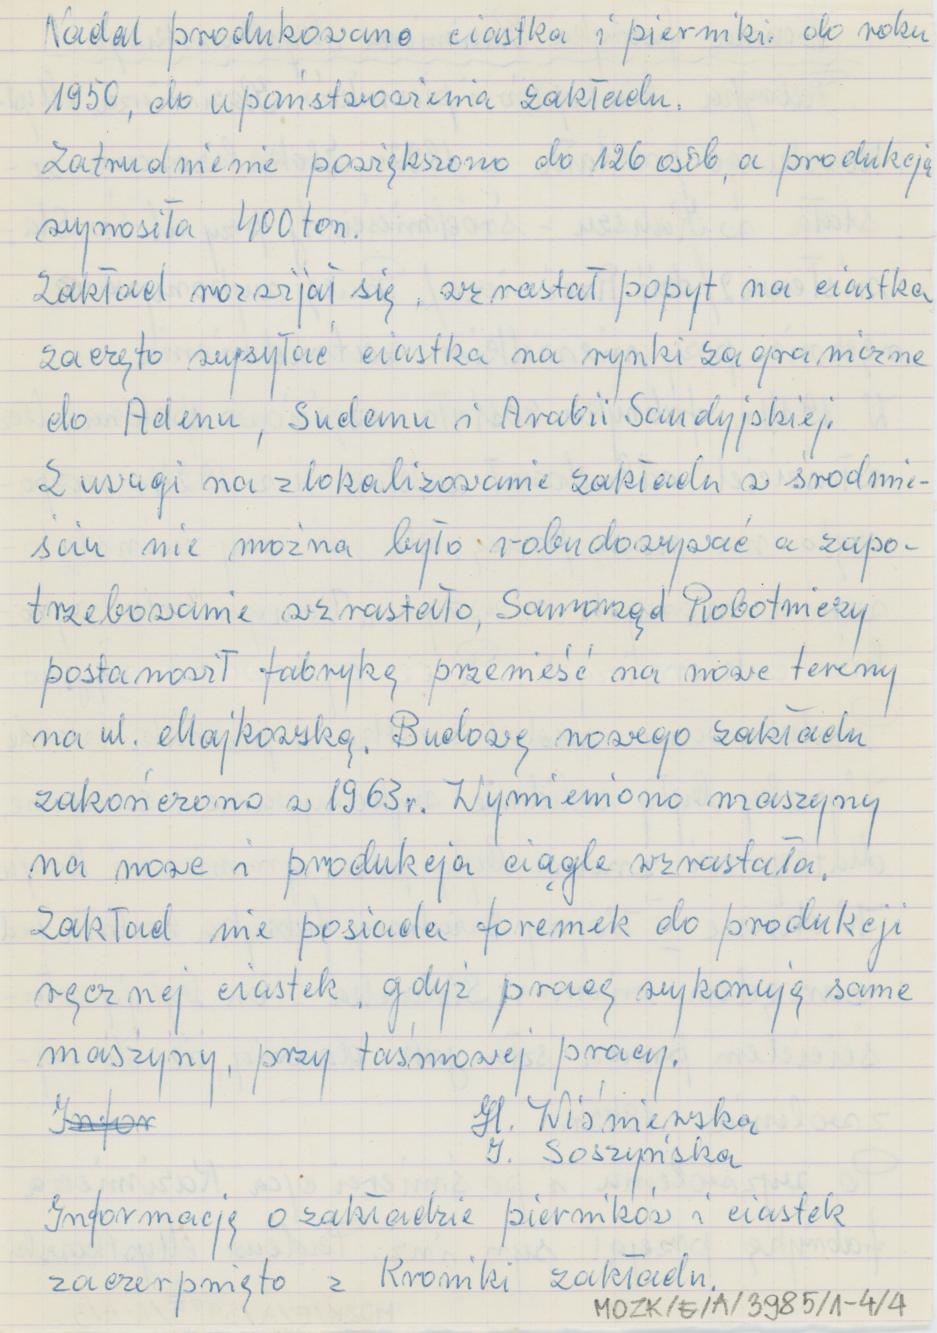 Nadal produkowano ciastka i pierniki. do roku
1950, do upaństwowienia zakładu.
Zatrudnienie powiększono do 126 osób, a produkcją
wynosiła 400 ton.
Zakład rozwijał się, wzrastał popyt na ciastka,
zaczęto wysyłać ciastka na rynki zagraniczne
do Adenu, Sudanu i Arabii Saudyjskiej.
Z uwagi na zlokalizowanie zakładu w śródmie-
ściu nie można było robudowywać a zapo-
trzebowanie wzrastało, Samorząd Robotniczy
postanowił fabrykę przenieść na nowe tereny
na ul. Majkowską. Budowę nowego zakładu
zakończono w 1963 r. Wymieniono maszyny
na nowe i produkcja ciągle wzrastała.
Zakład nie posiada foremek do produkcji
ręcznej ciastek, gdyż pracę wykonują same
maszyny, przy taśmowej pracy.
Infor
H. Wiśniewska
I. Soszyńska
Informację o zakładzie pierników i ciastek
zaczerpnięto z Kroniki zakładu.
MOZK/E/A/3985/1-4/4